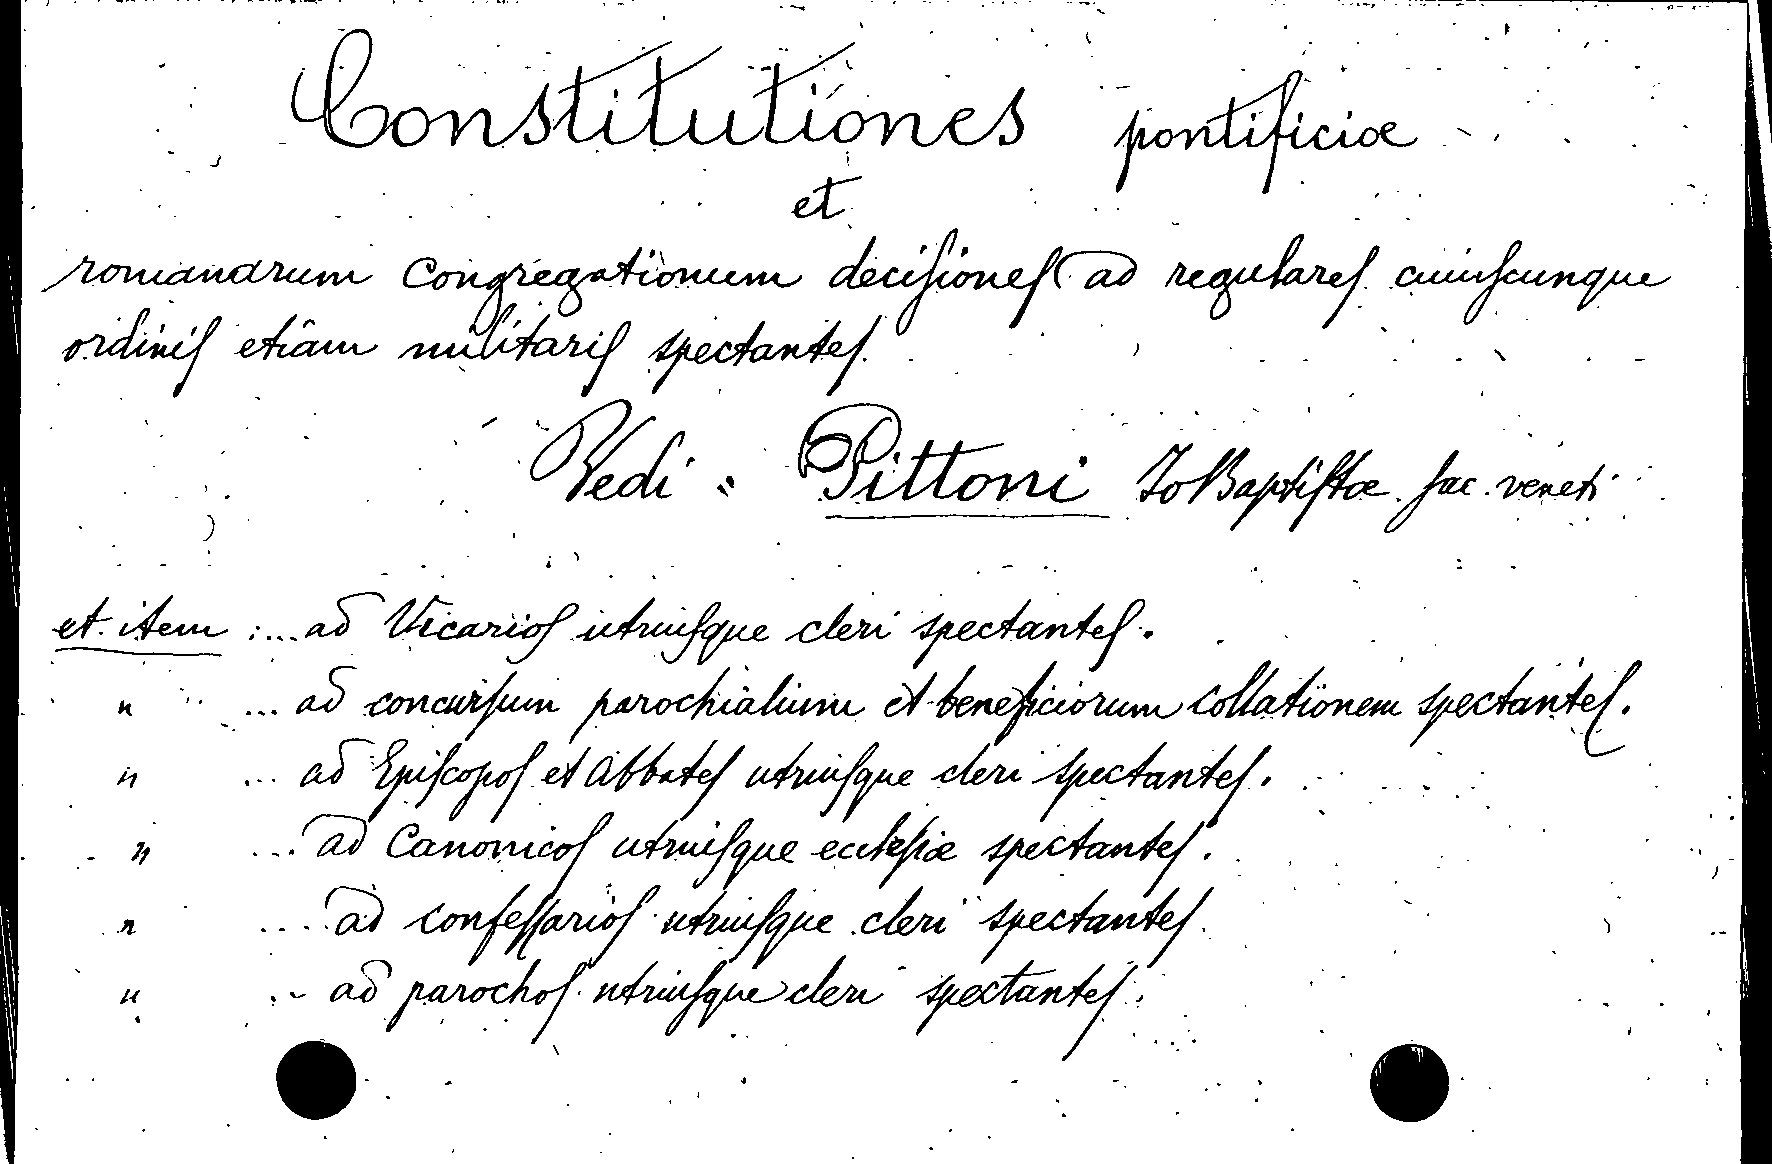 Constitutiones pontificiæ
et
romanarum Congregationum decisiones ad regulares cuiuscunque
ordinis etiam militaris spectantes.
Vedi : Pittoni Jo Baptistæ sac. veneti
et item :... ad Vicarios utriusque cleri spectantes.
" ... ad concursum parochialium et beneficiorum collationem spectantes.
" ... ad Episcopos et Abbates utriusque cleri spectantes.
" ... ad Canonicos utriusque ecclesiæ spectantes.
" .... ad confessarios utriusque cleri spectantes
" .. ad parochos utriusque cleri spectantes.